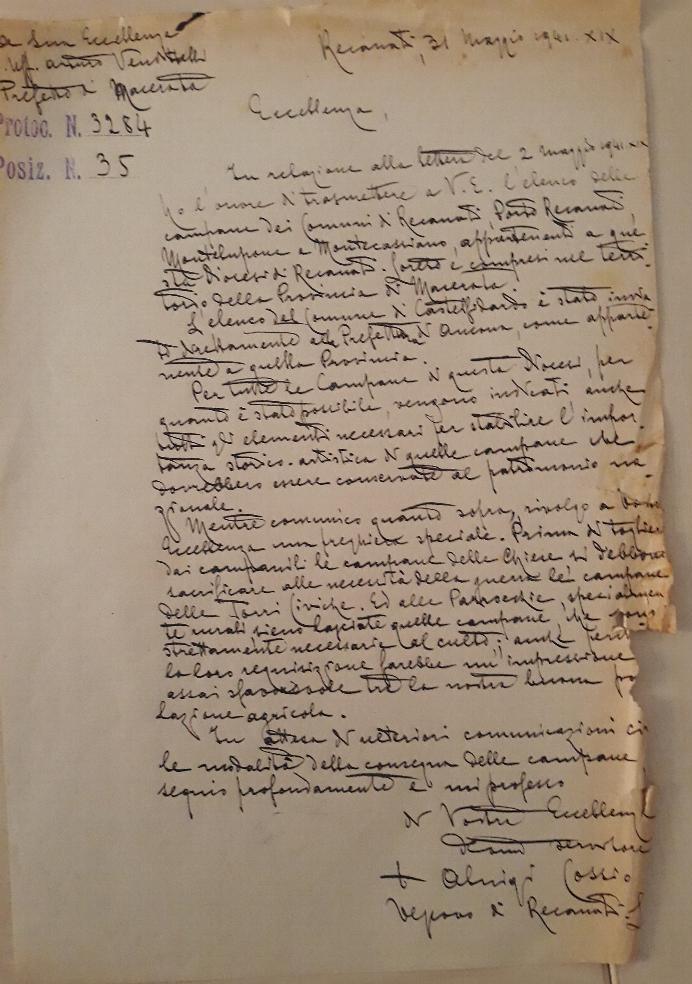 a Sua Eccellenza
. Uff. Arturo Venditelli
Prefetto di Macerata
Protoc. N. 3284
Posiz. N. 35
Recanati, 31 Maggio 1941. XIX
Eccellenza,
In relazione alla lettera del 2 maggio 1941. XIX
Ho l'onore di trasmettere a V. E. l'elenco delle
campane dei Comuni di Recanati, Porto Recanati
Montelupone e Montecassiano, appartenenti a que-
sta Diocesi di Recanati-Loreto e compresi nel terri-
torio della Provincia di Macerata.
L'elenco del Comune di Castelfidardo è stato invia
to direttamente alla Prefettura di Ancona, come apparte-
nente a quella Provincia.
Per tutte le Campane di questa Diocesi, per
quanto è stato possibile, vengono indicati anche
tutti gli elementi necessari per stabilire l'impor-
tanza storico-artistica di quelle campane che
dovrebbero essere conservate al patrimonio na-
zionale.
Mentre comunico quanto sopra, rivolgo a
Eccellenza una preghiera speciale. Prima di togliere
dai campanili le campane delle Chiese si debbono
sacrificare alle necessità della guerra le campane
delle Torri Civiche. Ed alle Parrocchie, specialmen
te rurali sieno lasciate quelle campane, che sono
strettamente necessarie al culto; anche perchè
la loro requisizione farebbe un'impressione
assai sfavorevole tra la nostra buona po
lazione agricola.
In attesa di ulteriori comunicazioni ci
le modalità della consegna delle campane
seguio profondamente e mi professo
di Vostra Eccellenza
servitore
+ Aluigi Cossio
Vescovo di Recanati-L